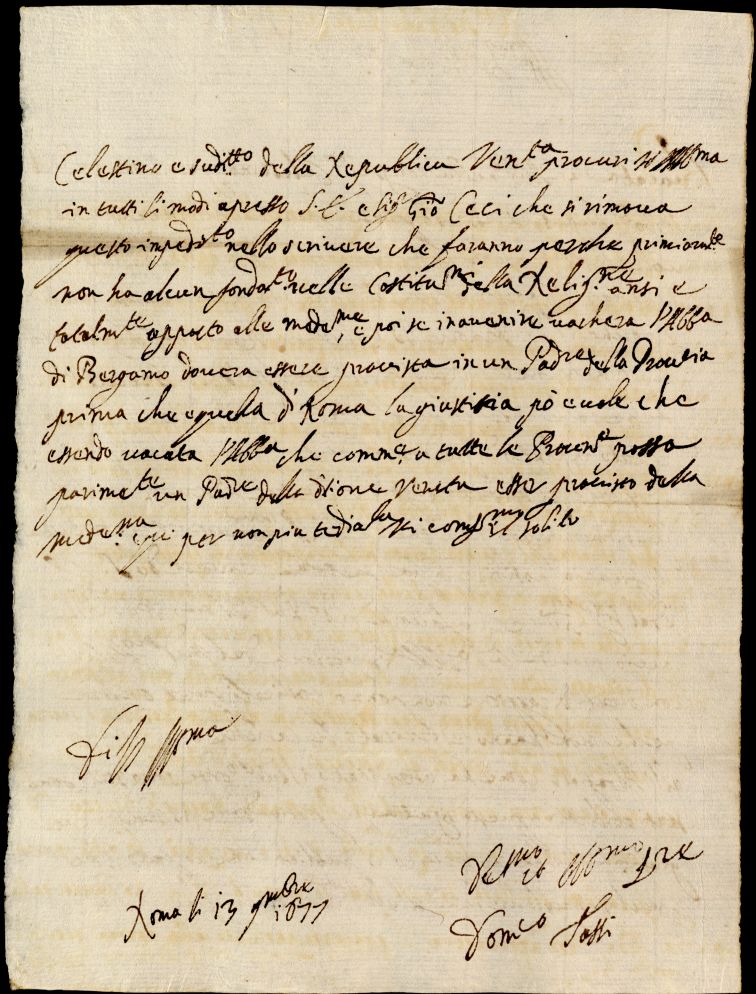 Celestino e sud.to della Republica Ven.ta procuri
in tutti li modi apresso S. E. e Sig. Gio Ceci che si rimova
questo imped.to nello scrivere che faranno perche primiam.te
non ha alcun fondam.to nelle Costitu.ni della Relig.ne ansi e
totalm.te opposto alle mede.me, e poi se in avenire vachera l'Abba
di Bergamo dovera essere provista in un Padre della Provcia
prima che quella di Roma la giustitia pò e vole che
essendo vacata l'Abba che comm.e a tutte le Provin.e possa
parime.te un Padre della ditione Veneta esser provisto della
mede.ma e qui per non piu tediarla solito
Di
Roma li 13 9mbre 1677
Dom.co Sassi